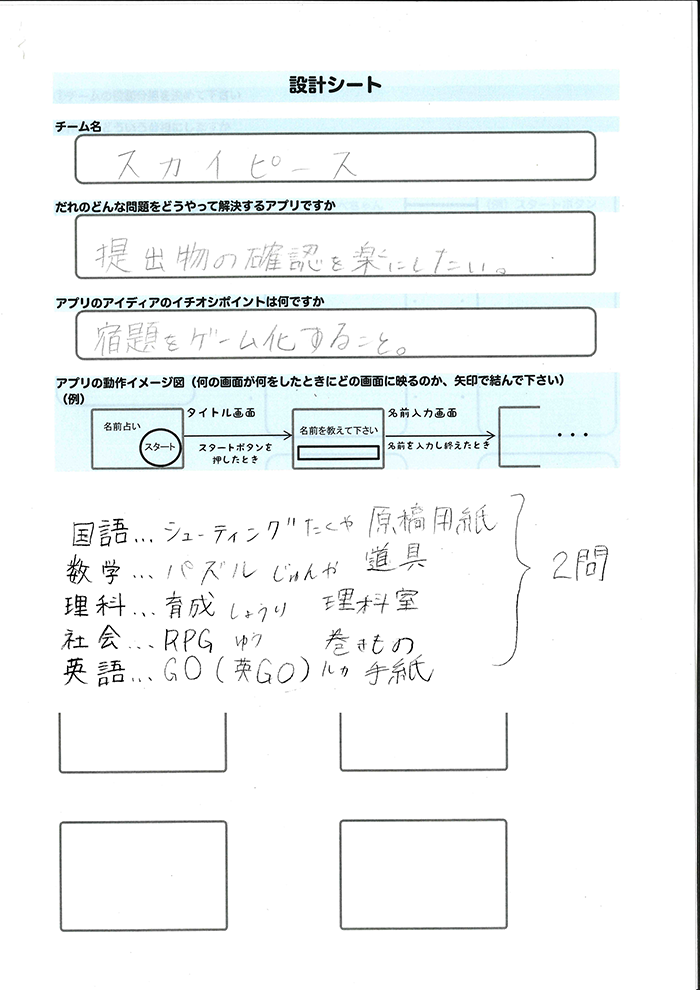 設計シート
チーム名
スカイピース
だれのどんな問題をどうやって解決するアプリですか
提出物の確認を楽にしたい。
アプリのアイディアのイチオシポイントは何ですか
宿題をゲーム化すること。
アプリの動作イメージ図（何の画面が何をしたときにどの画面に映るのか、矢印で結んで下さい）
（例）
名前占い
スタート
タイトル画面
スタートボタンを
押したとき
名前を教えて下さい
名前入力画面
名前を入力し終えたとき
・・・
国語...シューティング たくや 原稿用紙
数学...パズル じゅんや 道具
理科...育成 しょうり 理科室
社会...RPG ゆう 巻きもの
英語...GO(英GO) ルカ 手紙
2問